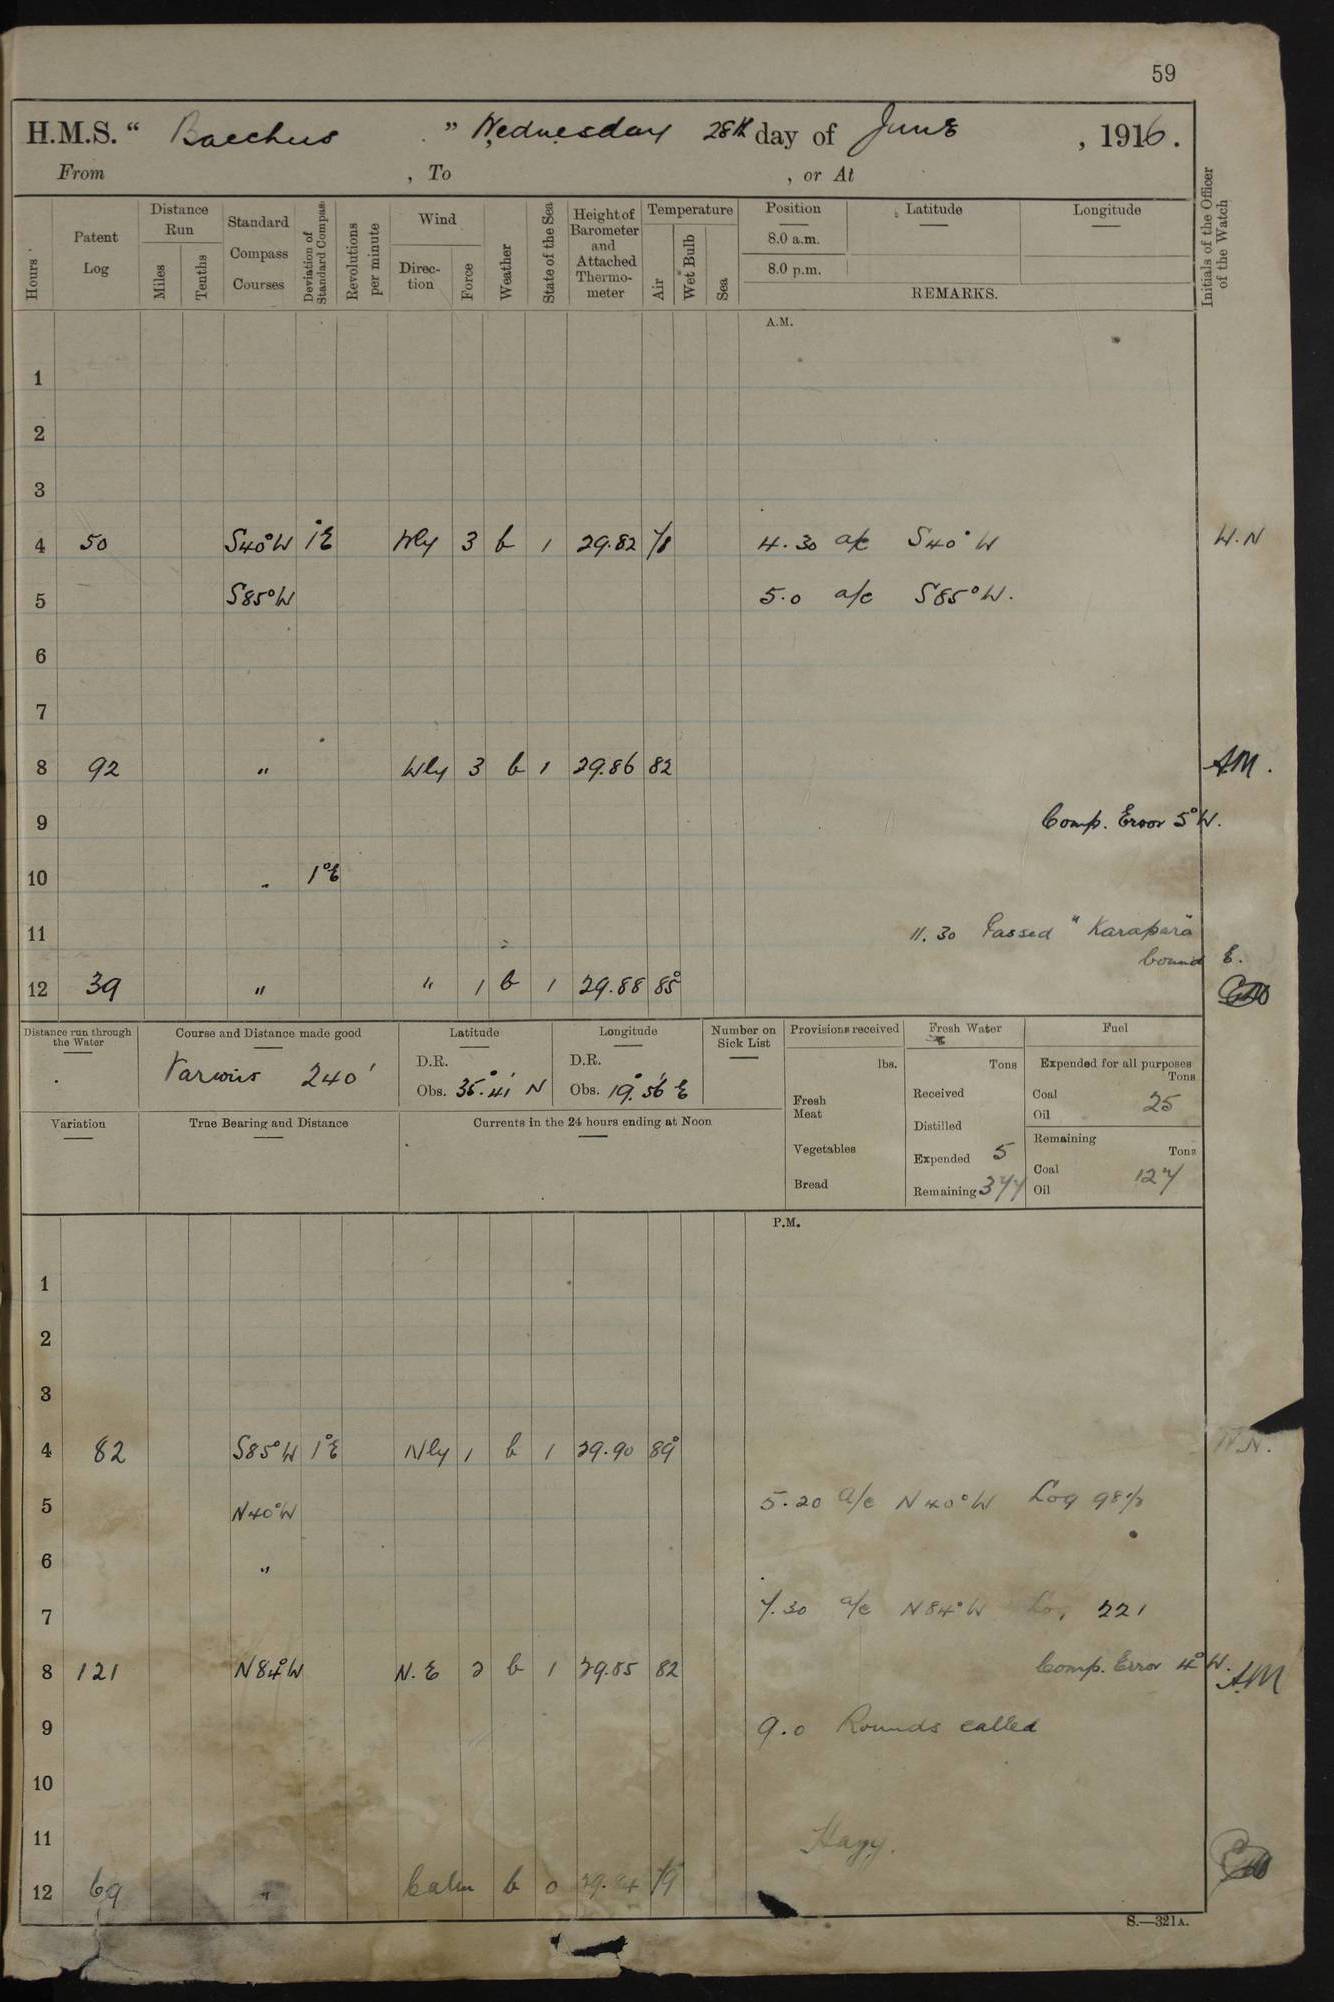 59
H.M.S. " Bacchus " Wednesday 28th day of June , 1916.
From , To , or At
Hours
Patent Log
Distance Run
Miles
Tenths
Standard Compass Courses
Deviation of Standard Compass
Revolutions per minute
Wind
Direction
Force
Weather
State of the Sea
Height of Barometer and Attached Thermometer
Temperature
Air
Wet Bulb
Sea
Position Latitude Longitude
8.0 a.m.
8.0 p.m.
REMARKS.
Initials of the Officer of the Watch
A.M.
1
2
3
4 50 S40°W 1°E Wly 3 b 1 29.82 78 4.30 a/c S40°W W.N
5 S85°W 5.0 a/c S85°W.
6
7
8 92 " Wly 3 b 1 29.86 82 A.M.
9 Comp. Error 5°W.
10 " 1°E
11 11.30 Passed "Karapara"
bound E.
12 39 " " 1 b 1 29.88 85°
Distance run through the Water
Course and Distance made good
Various 240'
Latitude
D.R.
Obs. 35°.41' N
Longitude
D.R.
Obs. 19°.56' E
Number on Sick List
Provisions received
lbs.
Fresh Meat
Vegetables
Bread
Fresh Water
Tons
Received
Distilled
Expended 5
Remaining 377
Fuel
Expended for all purposes
Tons
Coal 25
Oil
Remaining
Tons
Coal 127
Oil
Variation
True Bearing and Distance
Currents in the 24 hours ending at Noon
P.M.
1
2
3
4 82 S85°W 1°E Nly 1 b 1 29.90 89° W.N.
5 N40°W 5.20 a/c N40°W Log 98
6 "
7 7.30 a/c N84°W Log 221
8 121 N84°W N.E 2 b 1 29.85 82 Comp. Error 4°W. A.M
9 9.0 Rounds called
10
11 Hazy.
12 69 " Calm b 0 29.84 79
S.—321A.